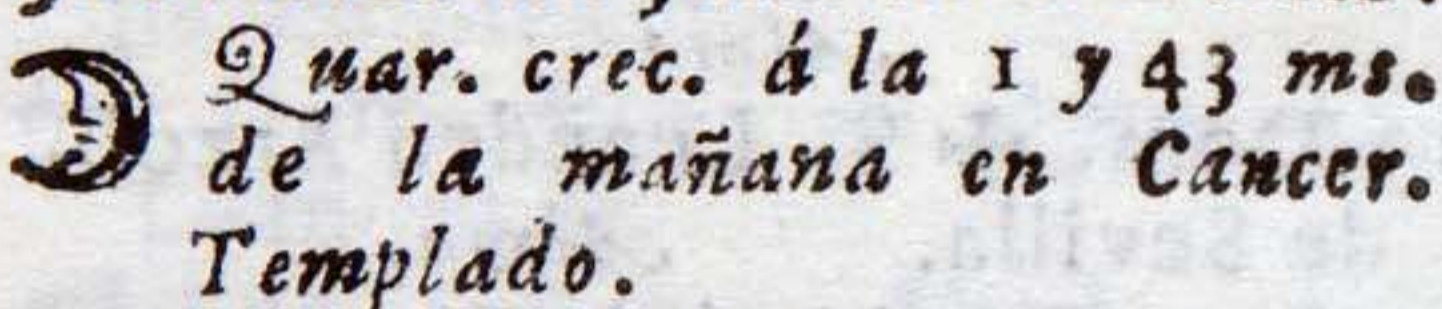 Quar. crec. á la 1 y 43 ms.
de la mañana en Cancer.
Templado.